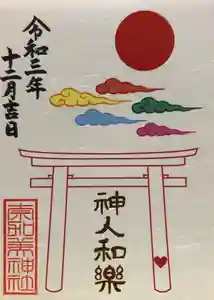 令和三年
十二月吉日
神人和樂
神社